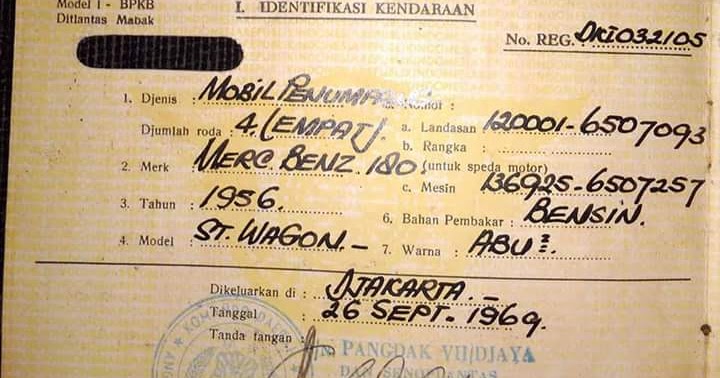 Model I - BPKB
Ditlantas Mabak
I. IDENTIFIKASI KENDARAAN
No. REG. DKI032105
1. Djenis : MOBIL PENUMPANG
Djumlah roda : 4. (EMPAT).
2. Merk : MERC. BENZ. 180
3. Tahun : 1956.
4. Model : ST. WAGON.-
5. Nomor :
a. Landasan : 120001-6507093
b. Rangka :
(untuk speda motor)
c. Mesin : 136925-6507257
6. Bahan Pembakar : BENSIN.
7. Warna : ABU².
Dikeluarkan di : DJAKARTA.-
Tanggal : 26 SEPT.- 1969.
Tanda tangan :
PANGDAK VII/DJAYA